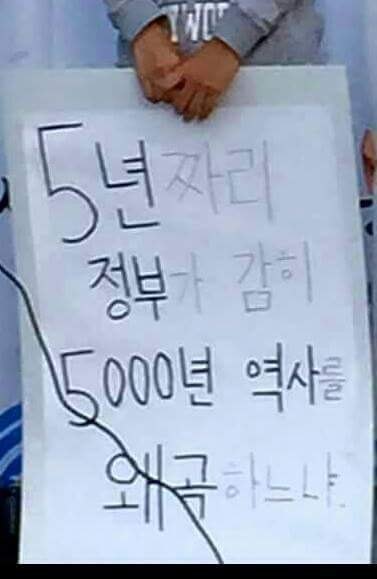 5년짜리
정부가 감히
5000년 역사를
왜곡하느냐.